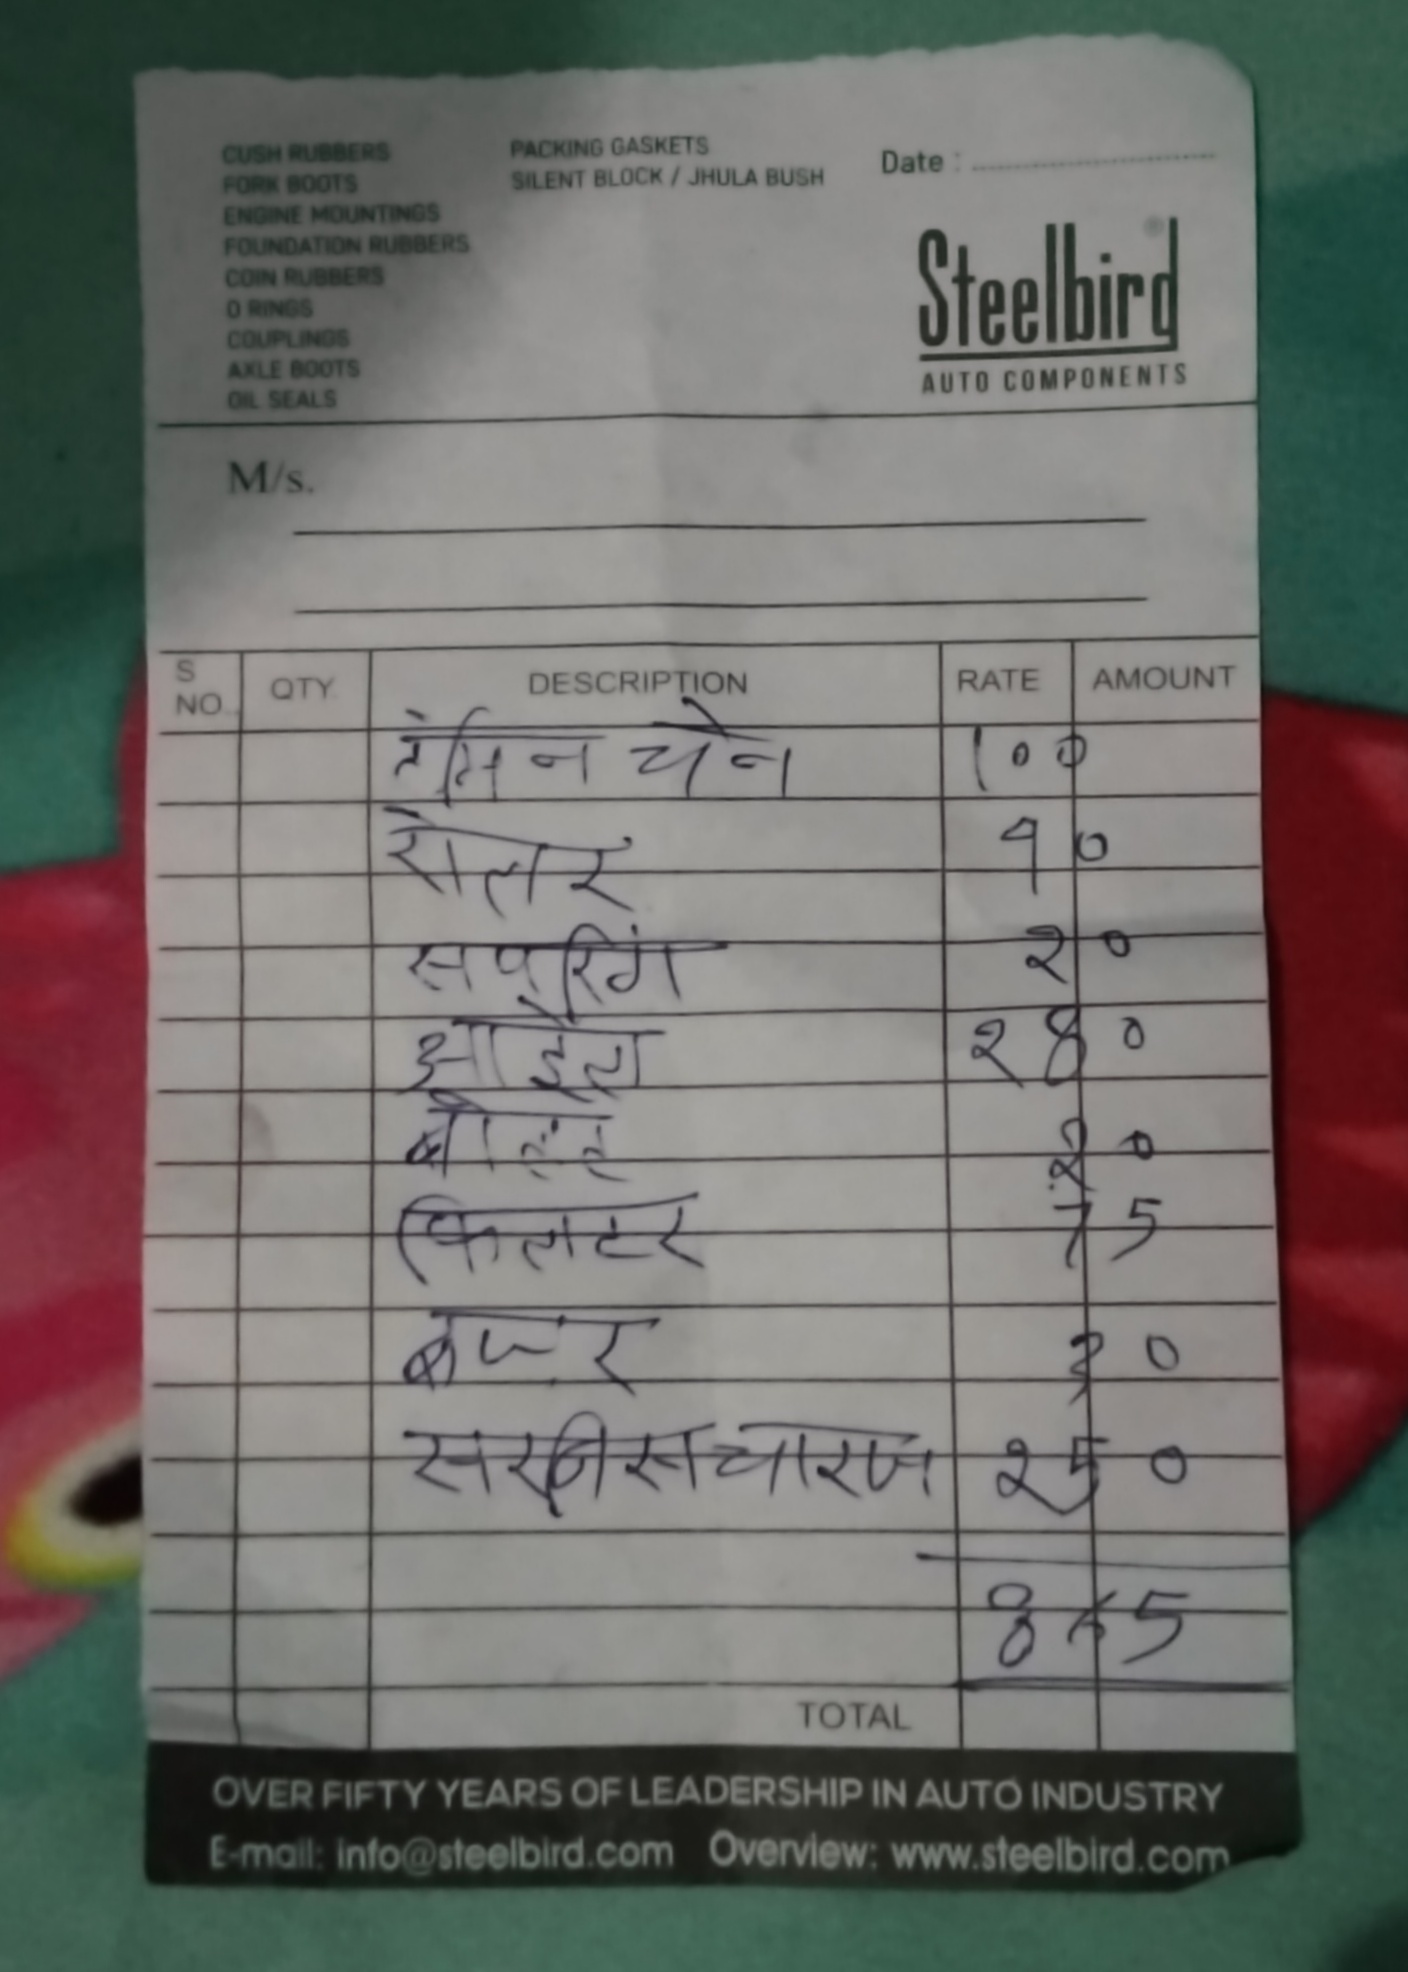 CUSH RUBBERS
FORK BOOTS
ENGINE MOUNTINGS
FOUNDATION RUBBERS
COIN RUBBERS
O RINGS
COUPLINGS
AXLE BOOTS
OIL SEALS
PACKING GASKETS
SILENT BLOCK / JHULA BUSH
Date :
Steelbird®
AUTO COMPONENTS
M/s.
S NO. QTY. DESCRIPTION RATE AMOUNT
चेन 100
रोलर 90
सपरिंग 20
280
20
फिलटर 75
30
सरवीस चारज 250
865
TOTAL
OVER FIFTY YEARS OF LEADERSHIP IN AUTO INDUSTRY
E-mail: info@steelbird.com Overview: www.steelbird.com